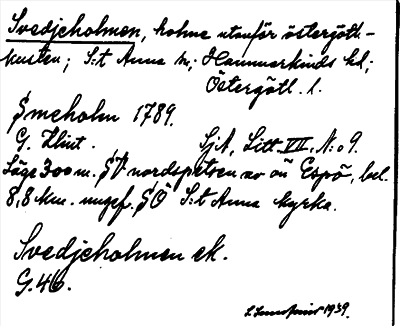 Svedjeholmen, holme utanför östergötl.-
kusten; S:t Anna sn; Hammarkinds hd;
Östergötl. l.
Smeholm 1789.
G. Klint. SjA, Litt. VII, N:o 9.
Läge 300 m. SV nordspetsen av ön Espö, bel.
8,8 km. ungef. SO S:t Anna kyrka.
Svedjeholmen ek.
G.46.
1939.